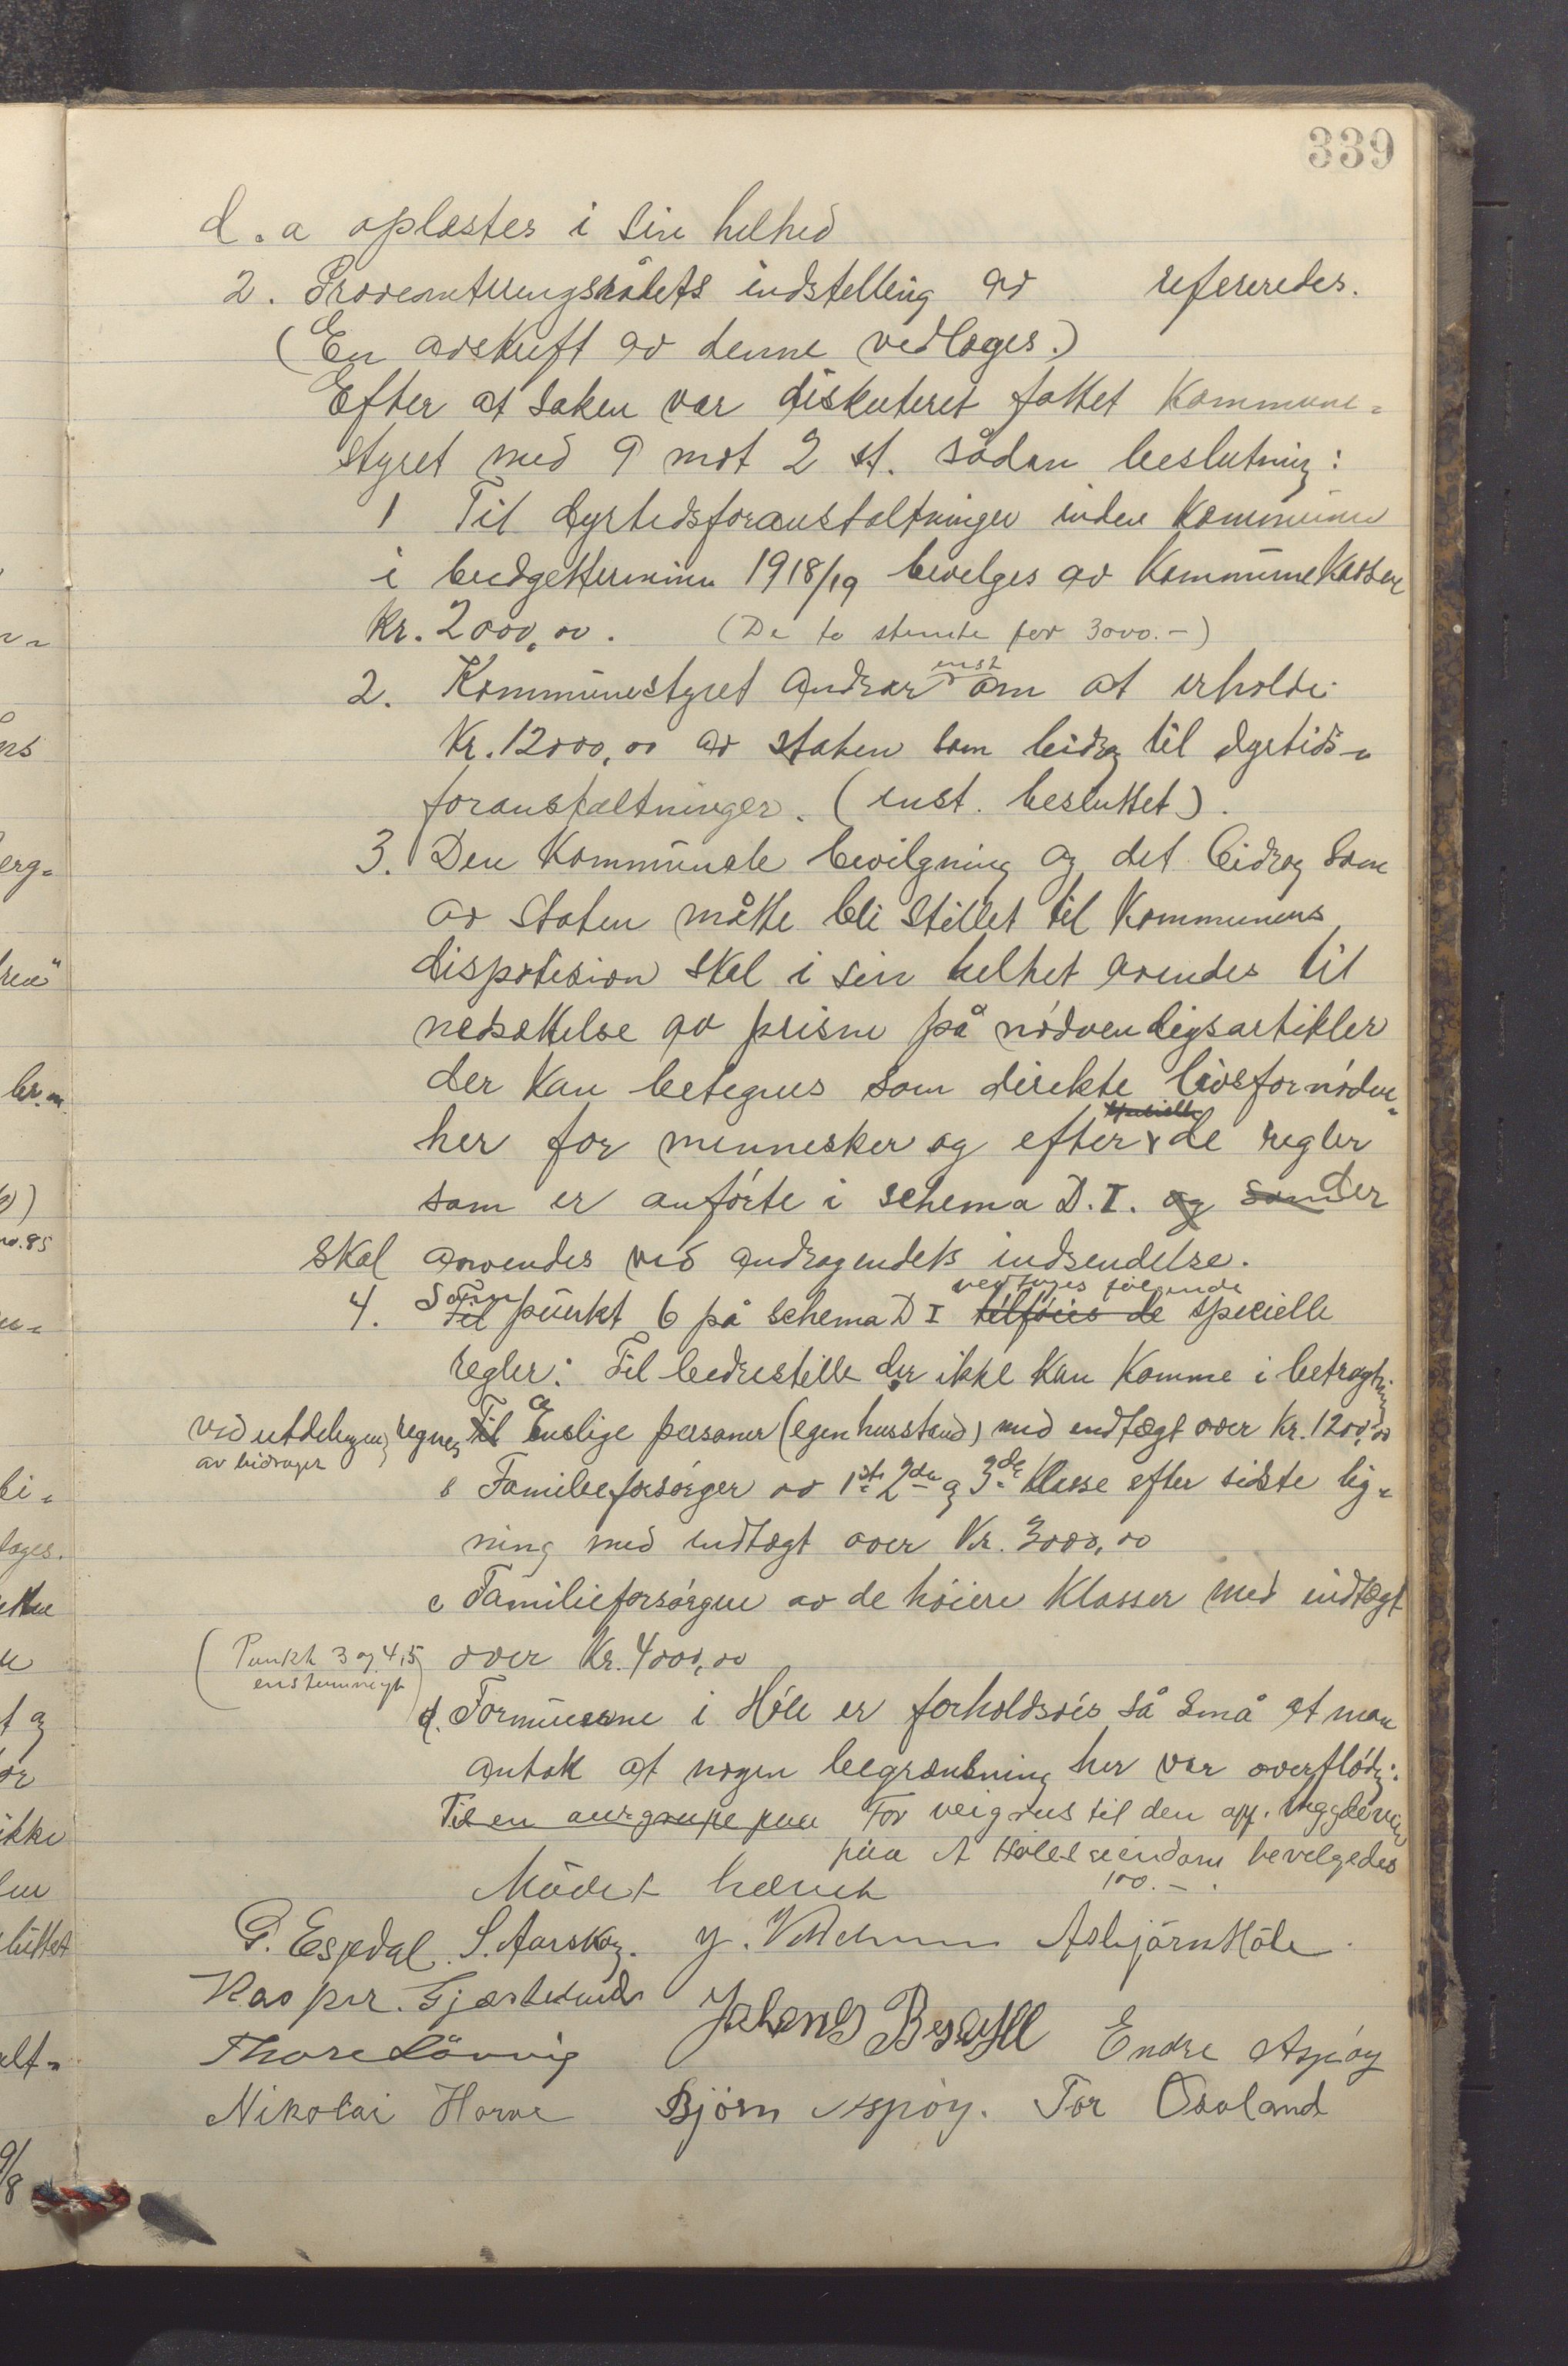 339
d. a oplæstes i sin helhed
2. Provianteringsrådets indstelling av refereredes.
(En avskrift av denne vedlæges.)
Efter at saken var diskuteret fattet kommune-
styret med 9 mot 2 st. sådan beslutning:
1 Til dyrtidsforanstaltninger inden kommunen
i budgetterminen 1918/19 bevilges av kommunekassen
kr. 2000,00. (De to stemte for 3000.-)
2. Kommunestyret andrar enst om at erholde
Kr. 12000,00 av staten som bidrag til dyrtids-
foranstaltninger. (enst. besluttet).
3. Den kommunale bevilgning og det bidrag som
av staten måtte bli stillet til kommunens
disposision skal i sin helhet avendes til
nedsættelse av prisene på nødvendigsartikler
der kan betegnes som direkte livsfornøden-
her for mennesker og efter specielle de regler
som er anførte i schema D.I. og som der
skal anvendes ved andragendets indsendelse.
4. Til Som punkt 6 på schema D I tilføies de vedtages følgende specielle
regler: Til bedrestillede der ikke kan komme i betragtning
ved utdelingen av bidraget regnes Til a Enslige personer (egen husstand) med indtægt over Kr. 1200,00
b Familieforsørger av 1ste 2den og 3de klasse efter sidste lig-
ning med indtægt over Kr. 3000,00
c Familieforsørgere av de høiere klasser med indtægt
over Kr. 4000,00
(Punkt 3 og 4, 5
enstemmigt)
d. Formuerne i Høle er forholdsvis så små at man
antok at nogen begrænsning her var overflødig.
Til en For veigrus til den opp.
paa A Høles eiendom bevilgedes
100.-.
Mødet hævet
G. Espdal. S. Aarskog. Asbjørn Høle.
Kaspar. Gjæstelund
Thore Lönning Endre Aspøy
Nikolai Horve Björn Aspøy. Tor Osaland